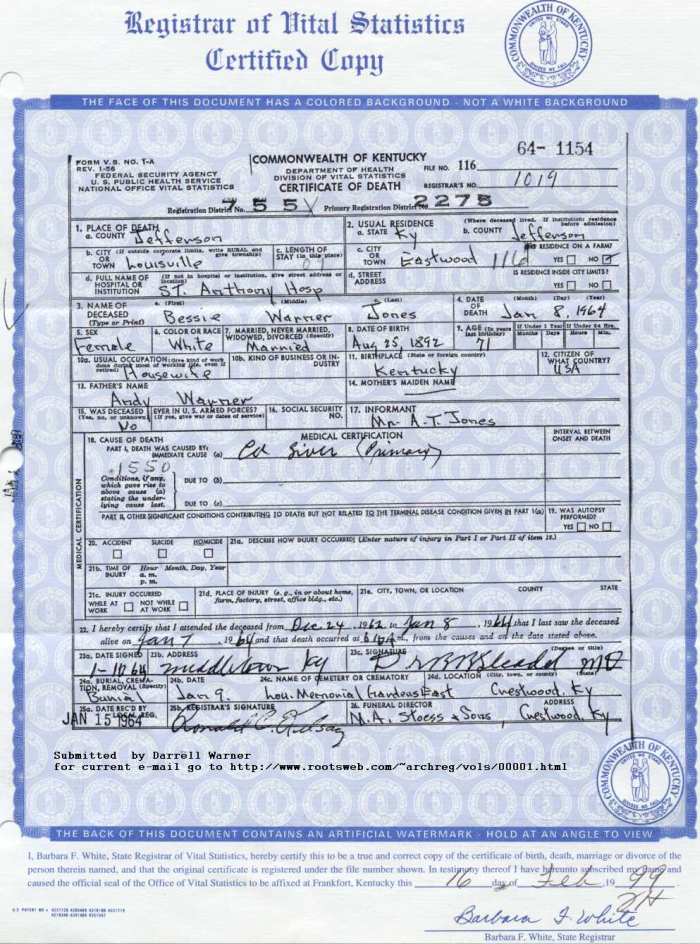 Registrar of Vital Statistics
Certified Copy
COMMONWEALTH OF KENTUCKY
THE FACE OF THIS DOCUMENT HAS A COLORED BACKGROUND - NOT A WHITE BACKGROUND
64- 1154
FORM V.S. NO. 1-A
REV. 1-56
FEDERAL SECURITY AGENCY
U. S. PUBLIC HEALTH SERVICE
NATIONAL OFFICE VITAL STATISTICS
COMMONWEALTH OF KENTUCKY
DEPARTMENT OF HEALTH
DIVISION OF VITAL STATISTICS
CERTIFICATE OF DEATH
FILE NO. 116
REGISTRAR'S NO. 1019
Registration District No. 755 Primary Registration District No. 2275
1. PLACE OF DEATH
a. COUNTY Jefferson
2. USUAL RESIDENCE (Where deceased lived. If institution: residence before admission)
a. STATE Ky b. COUNTY Jefferson
b. CITY (If outside corporate limits, write RURAL and give township)
OR TOWN Louisville
c. LENGTH OF STAY (in this place)
c. CITY OR TOWN Eastwood
IS RESIDENCE ON A FARM?
YES NO
d. FULL NAME OF HOSPITAL OR INSTITUTION (If not in hospital or institution, give street address or location)
ST. Anthony Hosp
d. STREET ADDRESS
IS RESIDENCE INSIDE CITY LIMITS?
YES NO
3. NAME OF DECEASED (Type or Print)
a. (First) (Middle) c. (Last)
Bessie Warner Jones
4. DATE OF DEATH (Month) (Day) (Year)
Jan 8, 1964
5. SEX
Female
6. COLOR OR RACE
White
7. MARRIED, NEVER MARRIED, WIDOWED, DIVORCED (Specify)
Married
8. DATE OF BIRTH
Aug 25, 1892
9. AGE (In years last birthday)
71
If Under 1 Year If Under 24 Hrs.
Months Days Hours Min.
10a. USUAL OCCUPATION (Give kind of work done during most of working life, even if retired)
Housewife
10b. KIND OF BUSINESS OR INDUSTRY
11. BIRTHPLACE (State or foreign country)
Kentucky
12. CITIZEN OF WHAT COUNTRY?
USA
13. FATHER'S NAME
Andy Warner
14. MOTHER'S MAIDEN NAME
15. WAS DECEASED EVER IN U. S. ARMED FORCES?
(Yes, no, or unknown) (If yes, give war or dates of service)
No
16. SOCIAL SECURITY NO.
17. INFORMANT
Mr. A.T. Jones
MEDICAL CERTIFICATION
18. CAUSE OF DEATH
MEDICAL CERTIFICATION
INTERVAL BETWEEN ONSET AND DEATH
PART I, DEATH WAS CAUSED BY:
IMMEDIATE CAUSE (a) Ca Liver (Primary)
1550
Conditions, if any, which gave rise to above cause (a) stating the underlying cause last.
DUE TO (b)
DUE TO (c)
PART II, OTHER SIGNIFICANT CONDITIONS CONTRIBUTING TO DEATH BUT NOT RELATED TO THE TERMINAL DISEASE CONDITION GIVEN IN PART I(a)
19. WAS AUTOPSY PERFORMED?
YES NO
20. ACCIDENT SUICIDE HOMICIDE
21a. DESCRIBE HOW INJURY OCCURRED (Enter nature of injury in Part I or Part II of item 18.)
21b. TIME OF INJURY Hour Month, Day, Year
a. m.
p. m.
21c. INJURY OCCURRED
WHILE AT WORK NOT WHILE AT WORK
21d. PLACE OF INJURY (e. g., in or about home, farm, factory, street, office bldg., etc.)
21e. CITY, TOWN, OR LOCATION COUNTY STATE
22. I hereby certify that I attended the deceased from Dec 24, 1962 to Jan 8, 1964 that I last saw the deceased
alive on Jan 7 1964 and that death occurred at m., from the causes and on the date stated above.
23a. DATE SIGNED
1-10 64
23b. ADDRESS
Middletown Ky
23c. SIGNATURE (Degree or title)
MD
24a. BURIAL, CREMATION, REMOVAL (Specify)
Burial
24b. DATE
Jan 9.
24c. NAME OF CEMETERY OR CREMATORY
Lou. Memorial Gardens East
24d. LOCATION (City, town, or county) (State)
Crestwood, Ky
25a. DATE REC'D BY LOCAL REG.
JAN 15 1964
25b. REGISTRAR'S SIGNATURE
26. FUNERAL DIRECTOR ADDRESS
M.A. Stoess & Sons, Crestwood, Ky
Submitted by Darrell Warner
for current e-mail go to http://www.rootsweb.com/~archreg/vols/00001.html
COMMONWEALTH OF KENTUCKY
THE BACK OF THIS DOCUMENT CONTAINS AN ARTIFICIAL WATERMARK - HOLD AT AN ANGLE TO VIEW
I, Barbara F. White, State Registrar of Vital Statistics, hereby certify this to be a true and correct copy of the certificate of birth, death, marriage or divorce of the
person therein named, and that the original certificate is registered under the file number shown. In testimony thereof I have hereunto subscribed my name and
caused the official seal of the Office of Vital Statistics to be affixed at Frankfort, Kentucky this 16 day of Feb 19 99
Barbara F. White
Barbara F. White, State Registrar